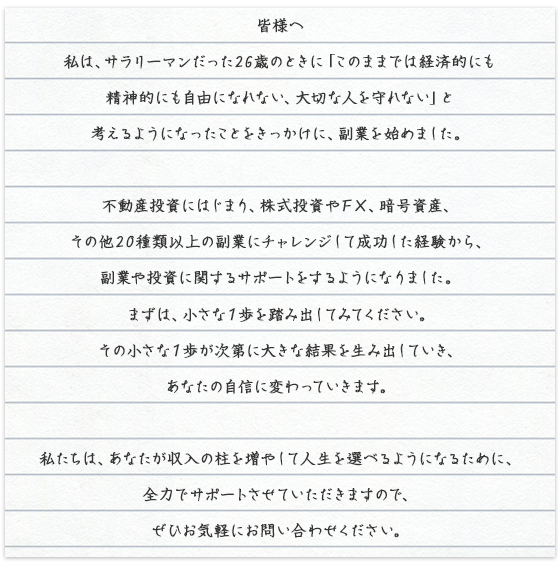 皆様へ
私は、サラリーマンだった26歳のときに「このままでは経済的にも
精神的にも自由になれない、大切な人を守れない」と
考えるようになったことをきっかけに、副業を始めました。
不動産投資にはじまり、株式投資やFX、暗号資産、
その他20種類以上の副業にチャレンジして成功した経験から、
副業や投資に関するサポートをするようになりました。
まずは、小さな1歩を踏み出してみてください。
その小さな1歩が次第に大きな結果を生み出していき、
あなたの自信に変わっていきます。
私たちは、あなたが収入の柱を増やして人生を選べるようになるために、
全力でサポートさせていただきますので、
ぜひお気軽にお問い合わせください。